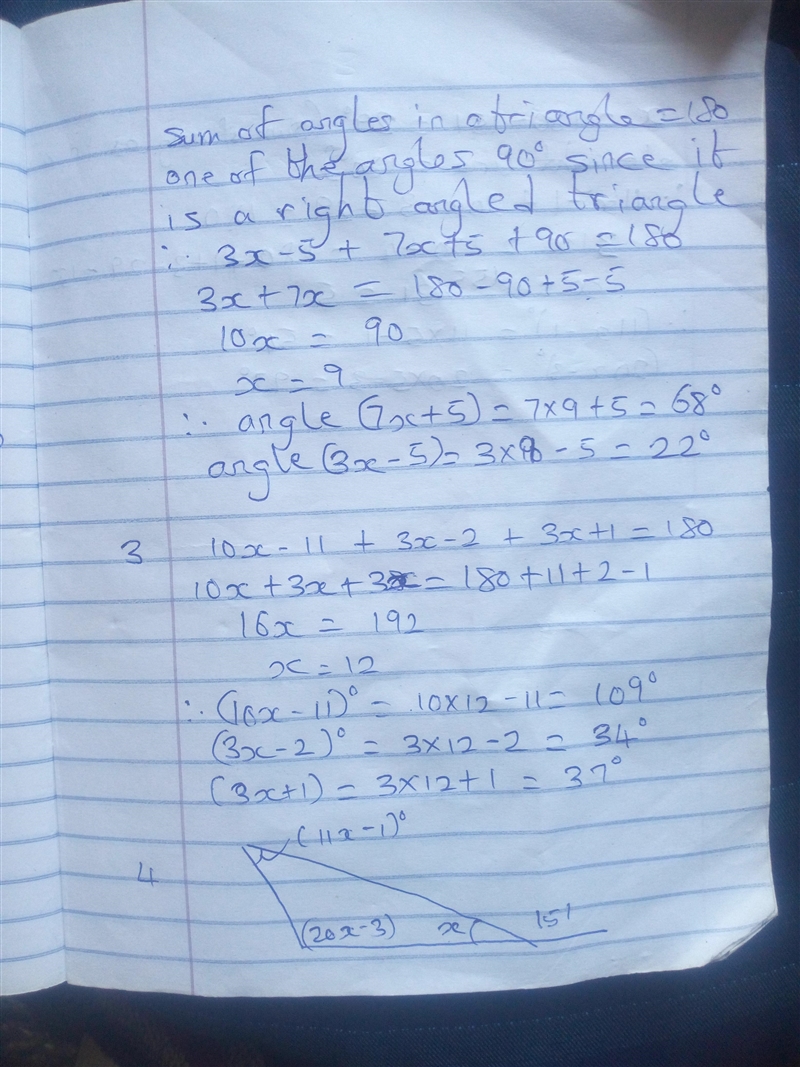 sum of angles in a triangle = 180
one of the angles 90° since it
is a right angled triangle
∴ 3x-5 + 7x+5 +90 = 180
3x+7x = 180-90+5-5
10x = 90
x = 9
∴ angle (7x+5) = 7x9+5 = 68°
angle (3x-5) = 3x9 - 5 = 22°
3 10x-11 + 3x-2 + 3x+1 = 180
10x+3x+3x = 180+11+2-1
16x = 192
x = 12
∴ (10x-11)° = 10x12-11 = 109°
(3x-2)° = 3x12-2 = 34°
(3x+1) = 3x12+1 = 37°
(11x-1)°
4
(20x-3) x 151